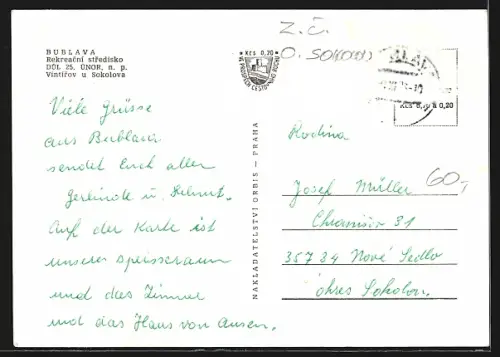 BUBLAVA
Rekreační středisko
DŮL 25. ÚNOR, n. p.
Vintířov u Sokolova
Viele Grüsse
aus Bublava
sendet Euch allen
Gerlinde u. Helmut.
Auf der Karte ist
unsere speisseraum
und das Zimmer
und das Haus von ausen.
NAKLADATELSTVÍ ORBIS — PRAHA
Kčs 0,20
Z. Č.
O. SOKOLOV
Kčs 0,70 a 0,20
Rodina
Josef Müller
60,-
31
357 34 Nové Sedlo
okres Sokolov.